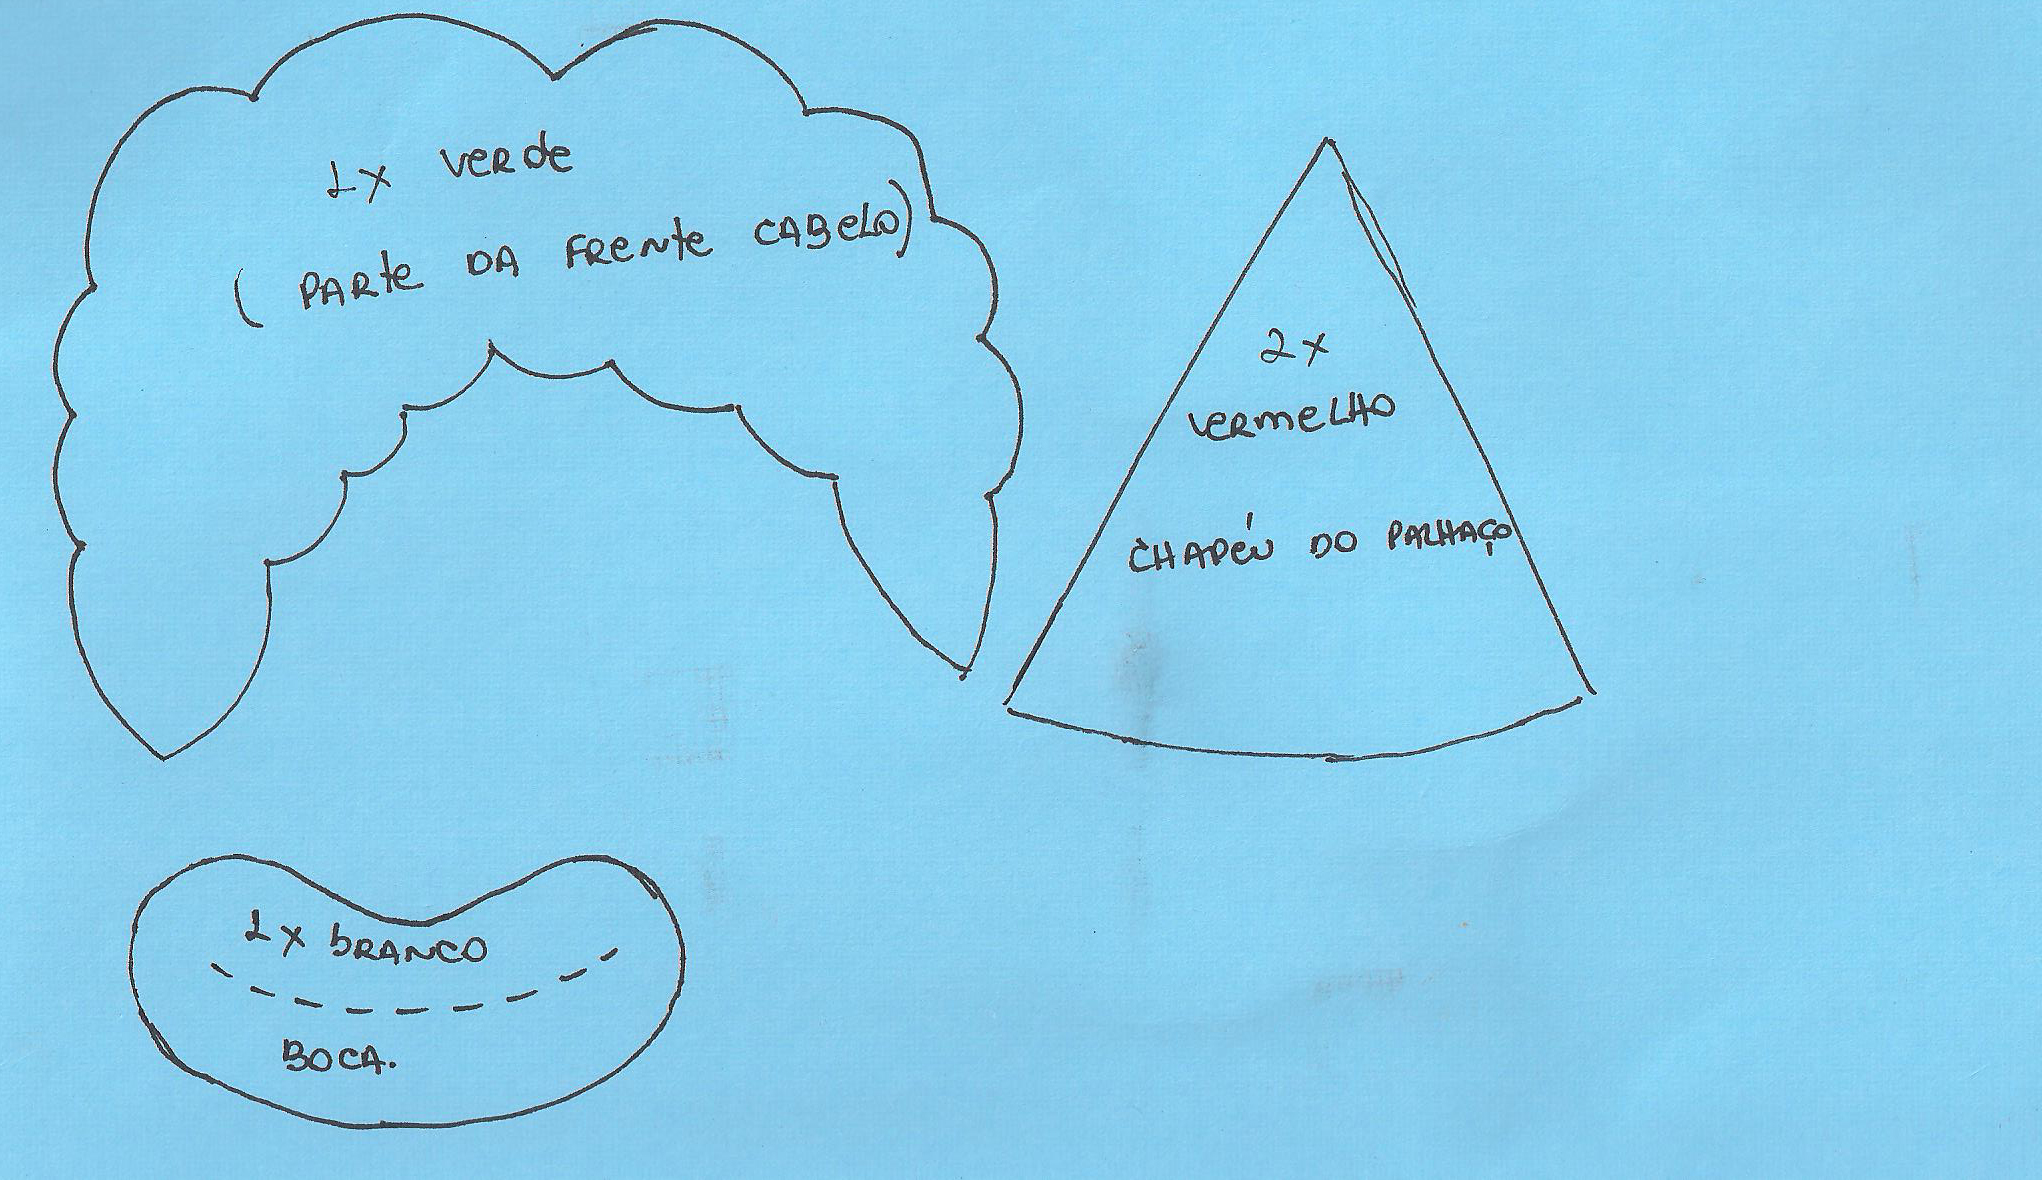 1x verde
( PARte DA FRente CABeLo)
2x
vermeLHo
CHAPéu DO PALHAço
1x bRANCO
BOCA.